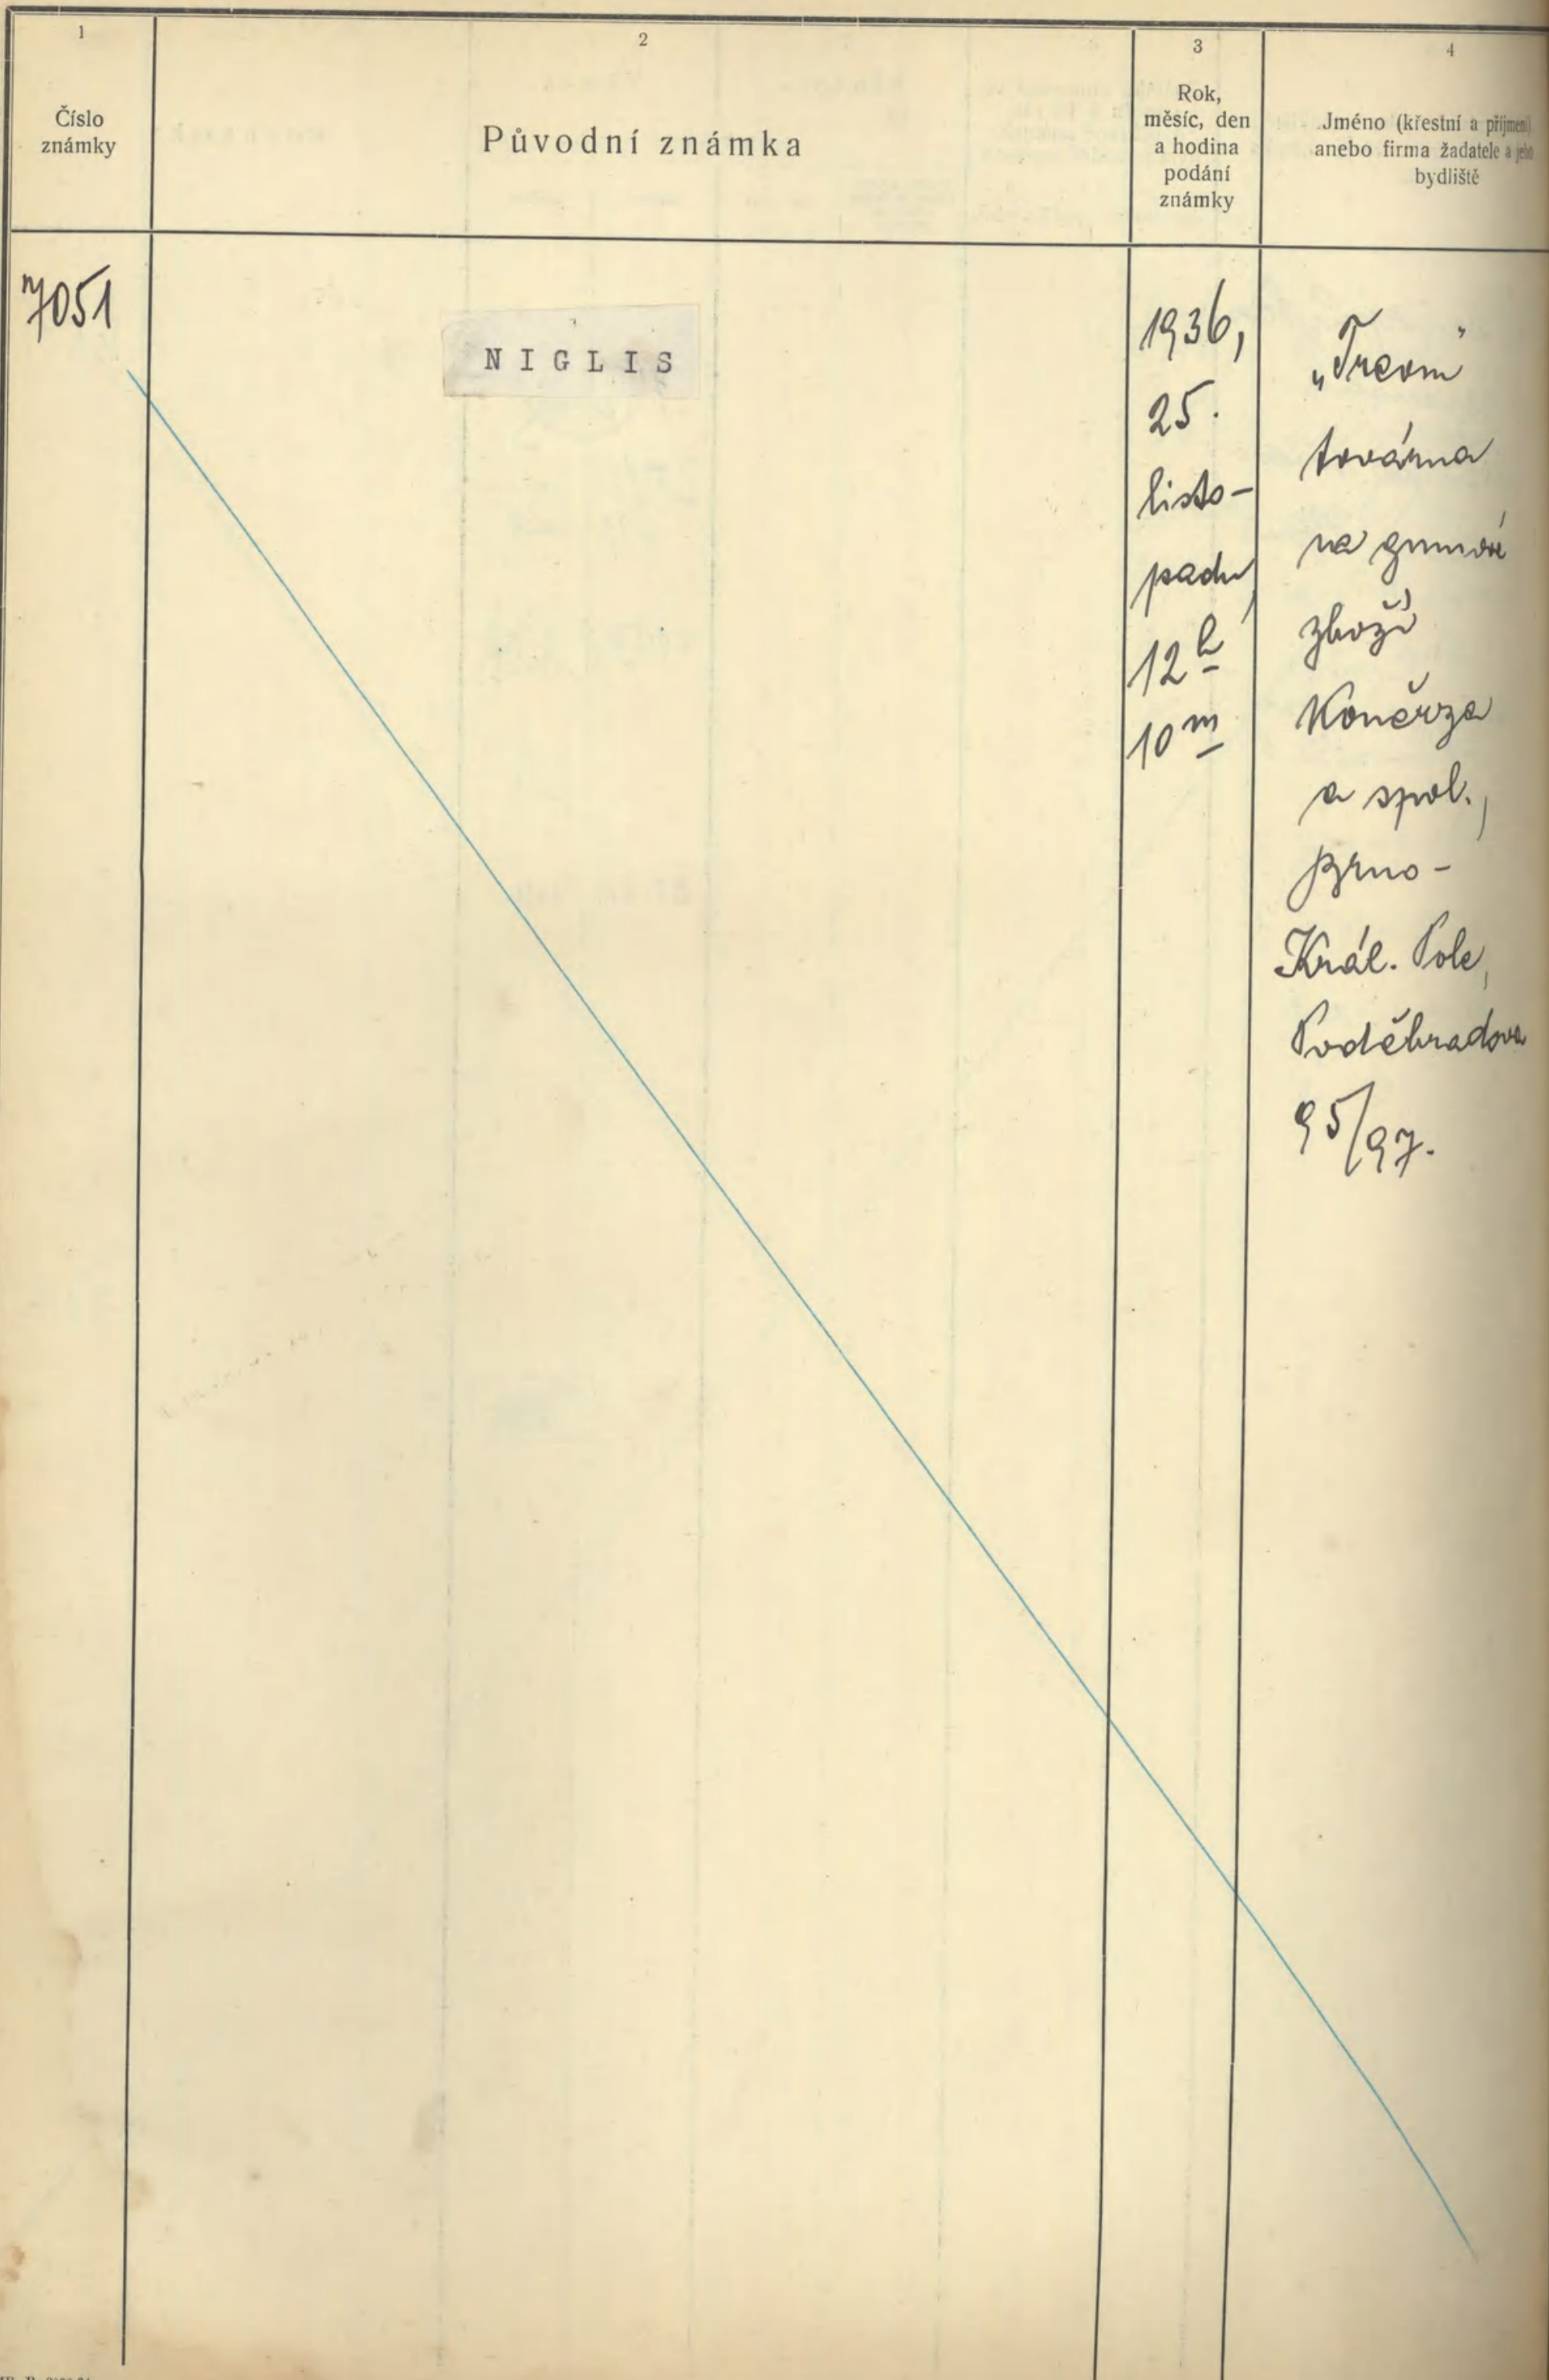 1
Číslo
známky
2
Původní známka
3
Rok,
měsíc, den
a hodina
podání
známky
4
Jméno (křestní a příjmení)
anebo firma žadatele a jeho
bydliště
7051
NIGLIS
1936,
25.
listo-
padu,
12 h
10 m
továrna
na gumové
zboží
a spol.,
Brno-
Král. Pole,
Poděbradova
95/97.